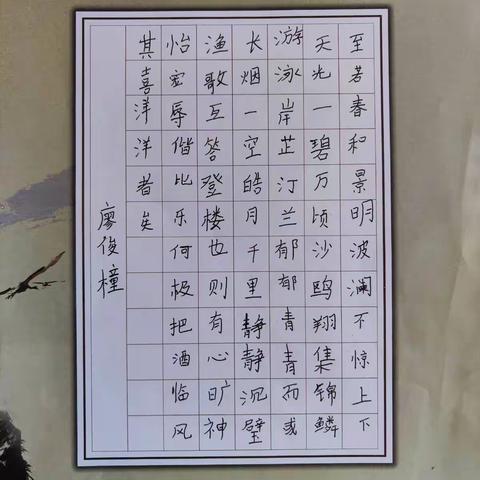 至若春和景明波澜不惊上下
天光一碧万顷沙鸥翔集锦鳞
游泳岸芷汀兰郁郁青青而或
长烟一空皓月千里静静沉璧
渔歌互答登楼也则有心旷神
怡宏辱偕比乐何极把酒临风
其喜洋洋者矣
廖俊橦